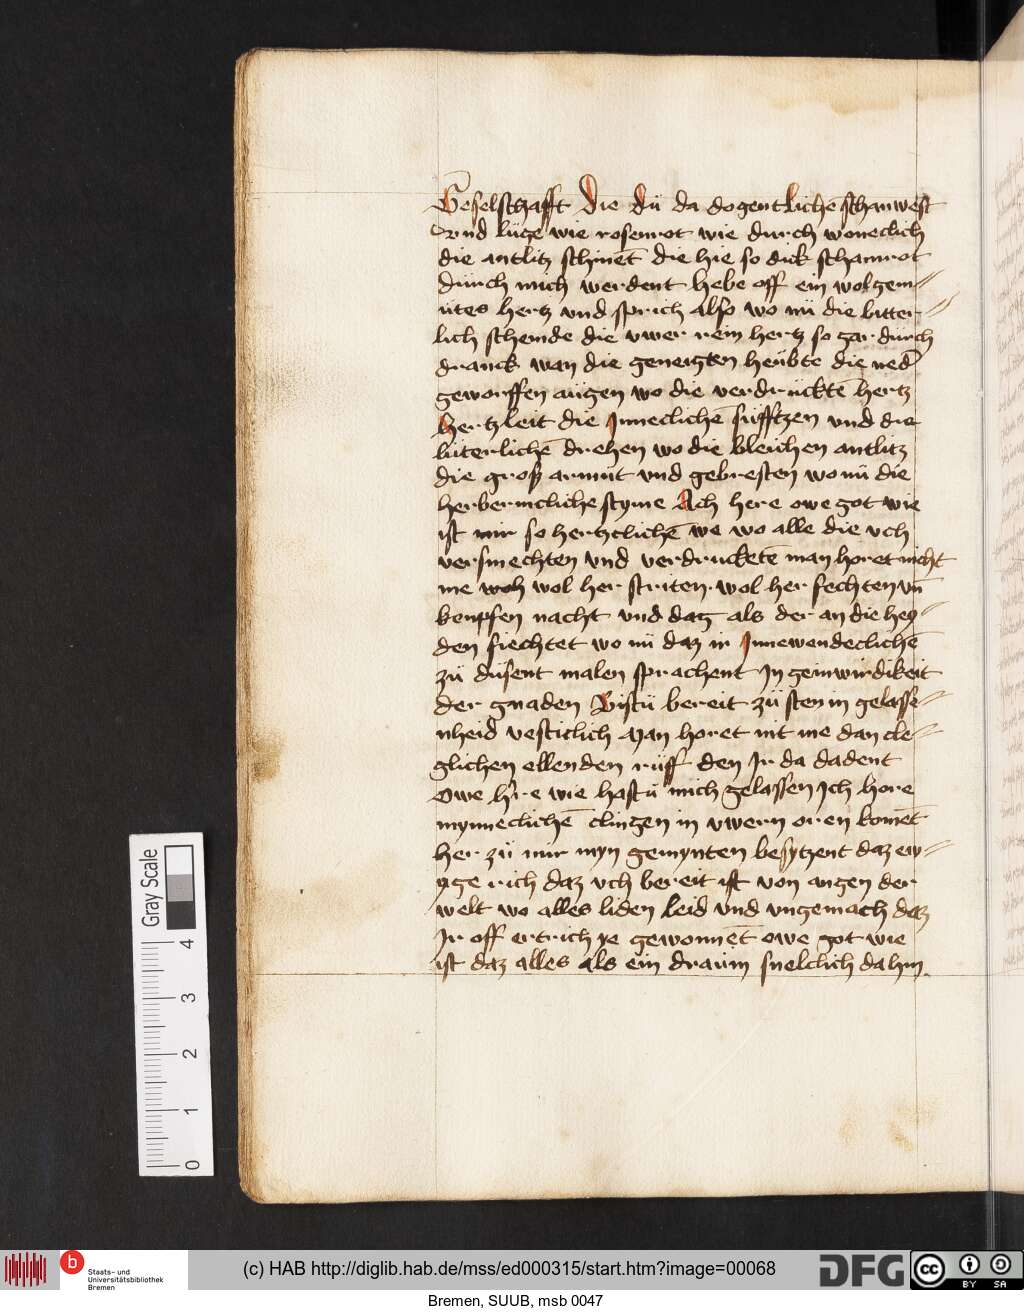 Geselschafft Die dü da dogentlichē schauwest
vnd lüge wie rosenrot wie durch woneclich
die antlitz schinēt die hie so dick schamrot
durch mich werdent hebe off ein wolgem-
ütes hertz vnd sprich also wo nü die bitter-
lich scheinde die vwer rein hertz so gar dürch
dranck wan die geneigten heübte die ned'
geworffen aügen wo die verdrücktē hertz
hertzleit die Inneclichē süfftzen vnd die
lüterlichē drehen wo die bleichen antlitz
die groß armüt vnd gebresten wo nü die
herbermcliche styme Ach here owe got wie
ist mir so hertzclichē we wo alle die vch
versmechten vnd verdrucketē man horet nicht
me woh wol her striten wol her fechten vn̄
kempfen nacht vnd dag als der an die hey-
den fiechtet wo nü daz ir Innewendeclichē
zü düsent malen sprachent In geinwirdikeit
der gnaden Bistü bereit zü sten in gelasse-
nheid vesticlich Man horet nit me dan cle-
glichen ellenden rüff den Ir da dadent
Owe h're wie hastü mich gelassen Ich hore
mynneclichē clingen in vwern oren komēt
her zü mir myn gemynten besytzent daz ew-
yge rich daz vch bereit ist von angen der
welt wo alles liden leid vnd vngemach daz
Ir off ertrich ye gewonnēt owe got wie
ist daz alles als ein draüm snelclich da hin
Gray Scale
4
3
2
1
0
b
Staats- und
Universitätsbibliothek
Bremen
(c) HAB http://diglib.hab.de/mss/ed000315/start.htm?image=00068
DFG
cc
BY SA
Bremen, SUUB, msb 0047